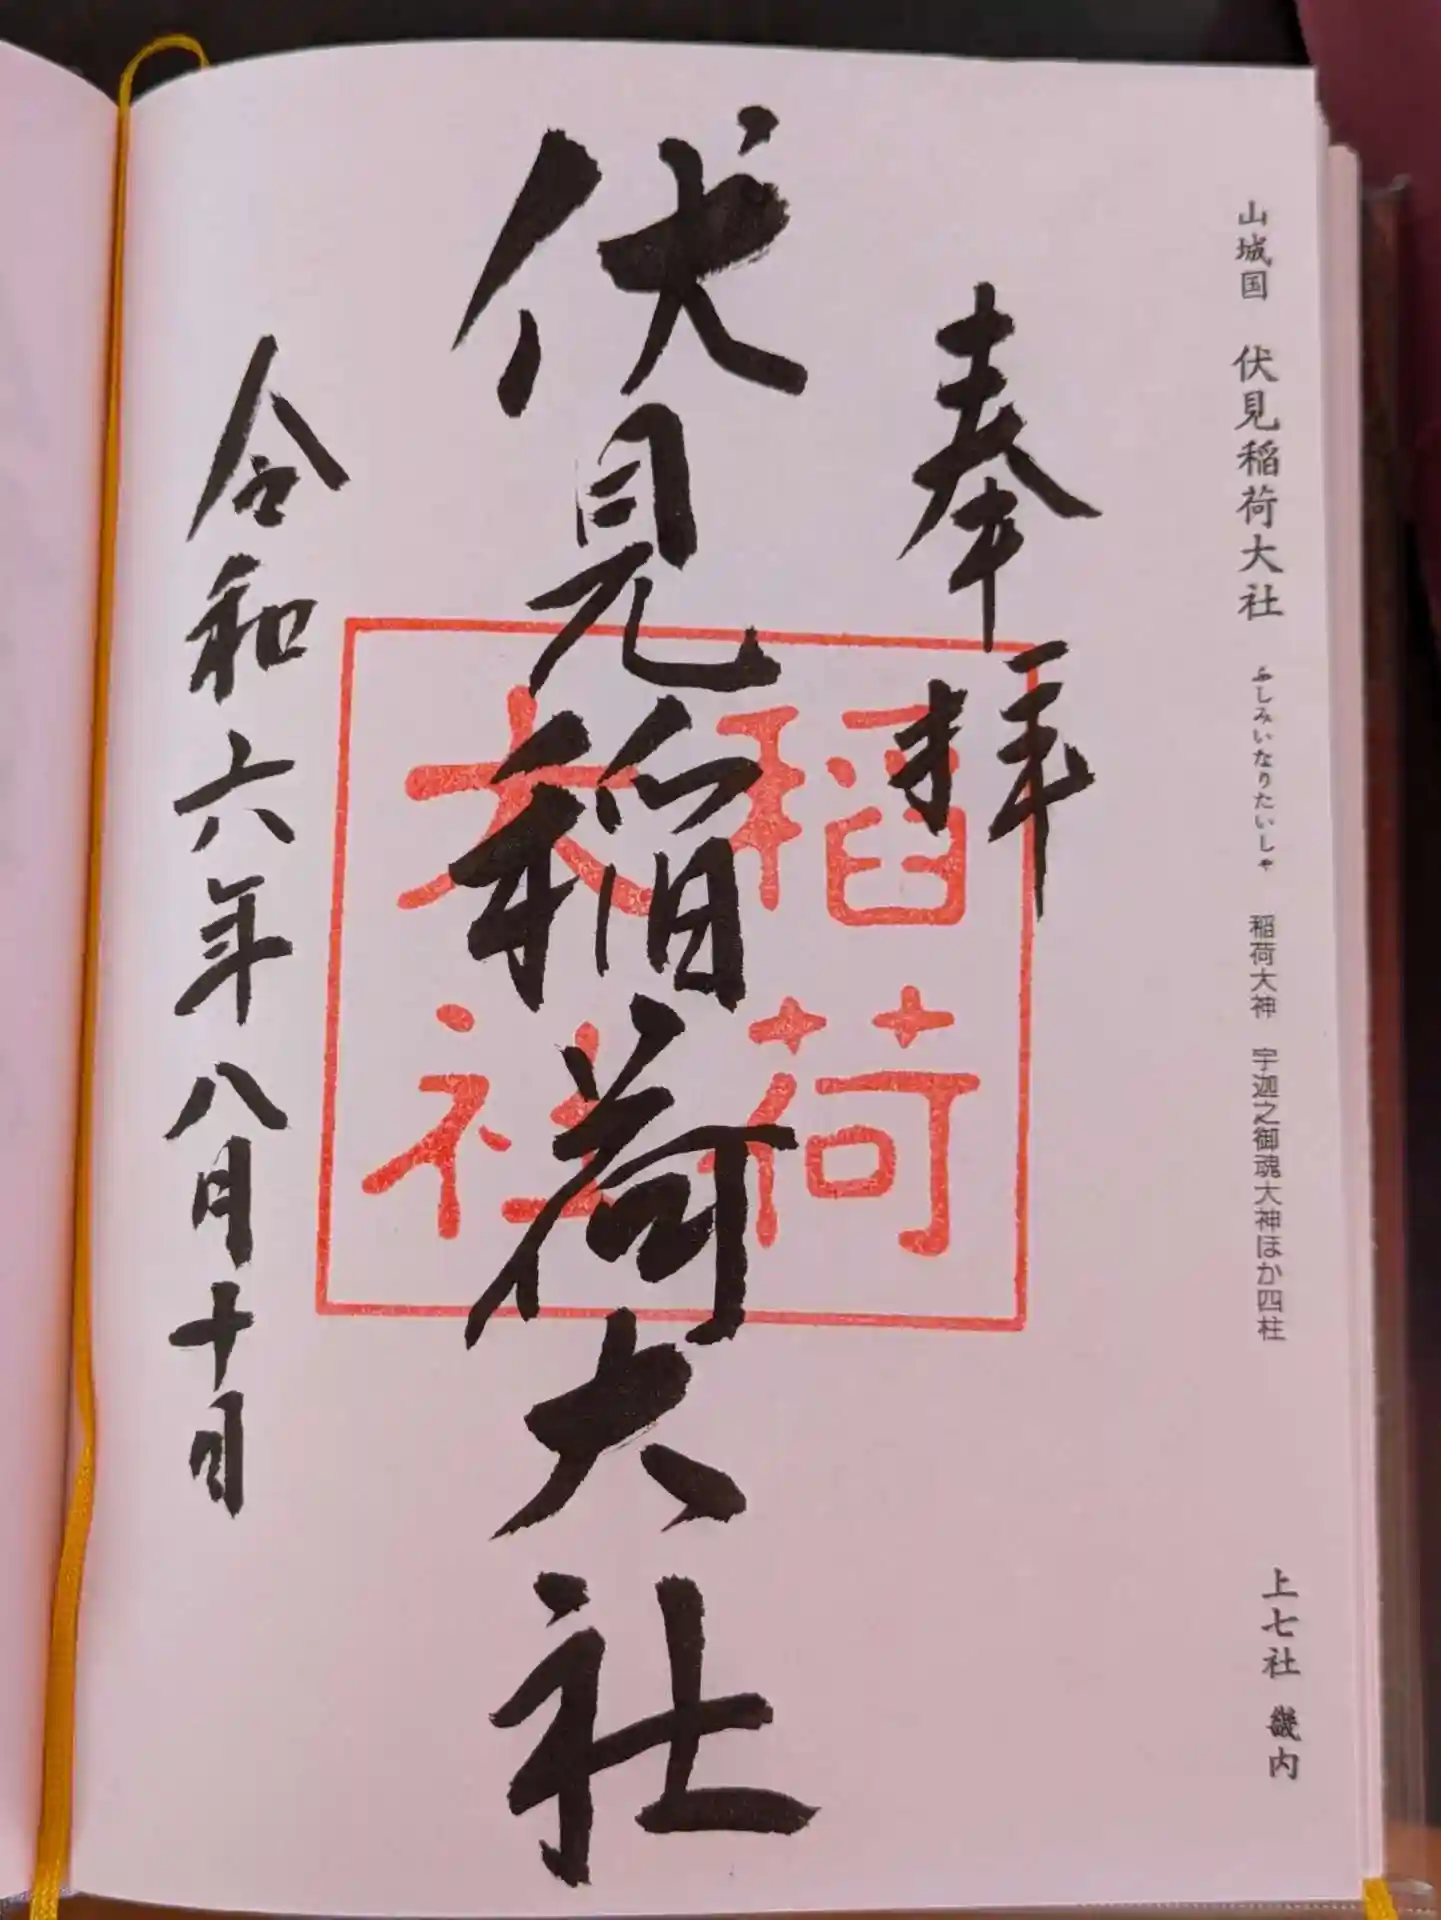 山城国 伏見稲荷大社 ふしみいなりたいしゃ 稲荷大神 宇迦之御魂大神ほか四柱
上七社 畿内
奉拝
伏見稲荷大社
稲荷
大社
令和六年八月十日